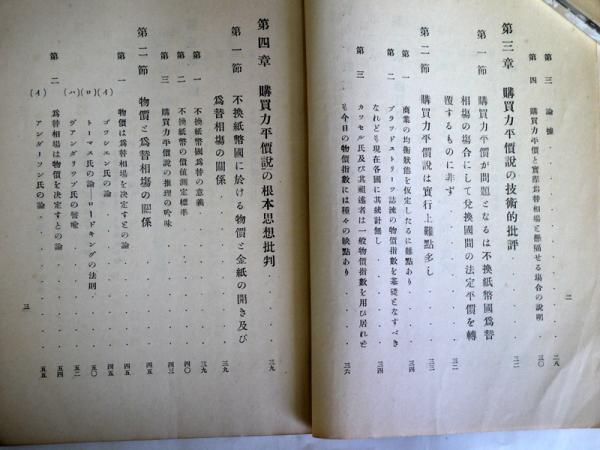 第三 論據・・・・・二八
第四 購買力平價と實際爲替相場と懸隔せる場合の說明・・・三〇
第三章 購買力平價說の技術的批評・・・・・三二
第一節 購買力平價が問題となるは不換紙幣國爲替
相場の場合にして兌換國間の法定平價を轉
覆するものに非ず・・・・・三二
第二節 購買力平價說は實行上難點多し・・・・・三三
第一 商業の均衡狀態を假定したるに難點あり・・・・・三四
第二 ブラッドストリーツ誌流の物價指數を基礎となすべき
なれども現在各國に其統計無し・・・・・三四
第三 カッセル氏及び其祖述者は一般物價指數を用ひ居れど
も今日の物價指數には種々の缺點あり・・・・・三六
二
第四章 購買力平價說の根本思想批判・・・・・三九
第一節 不換紙幣國に於ける物價と金紙の開き及び
爲替相場の關係・・・・・三九
第一 不換紙幣國爲替の意義・・・・・三九
第二 不換紙幣の價値測定標準・・・・・四〇
第三 購買力平價說の推理の吟味・・・・・四三
第二節 物價と爲替相場の關係・・・・・四五
第一 物價は爲替相場を決定すとの論・・・・・四五
(イ) ゴッシエン氏の論・・・・・四五
(ロ) トーマス氏の論―ロードキングの法則・・・・・五〇
(ハ) ヴアンダリップ氏の譬喩・・・・・五二
第二 爲替相場は物價を決定すとの論・・・・・五四
(イ) アンダーソン氏の論・・・・・五五
三